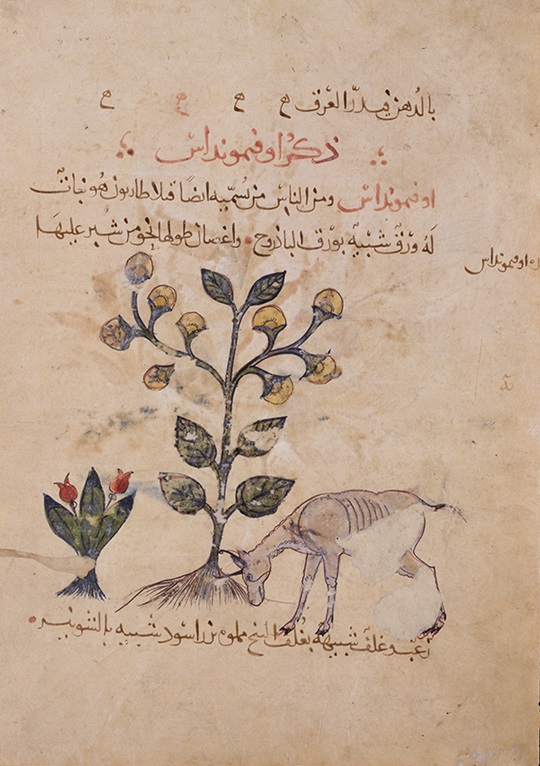 بالدهن فيدر العرق ع ع ع ع
ذكر اوفيمونداس
اوفيمونداس ومن الناس من يسميه ايضا هو نبات
له ورق شبيه بورق الباذروج واغصان طولها نحو من شبر عليها
اوفيمونداس
زغب وغلف شبيهة بغلف البنج مملوه بزرا اسود شبيه بالشونيز